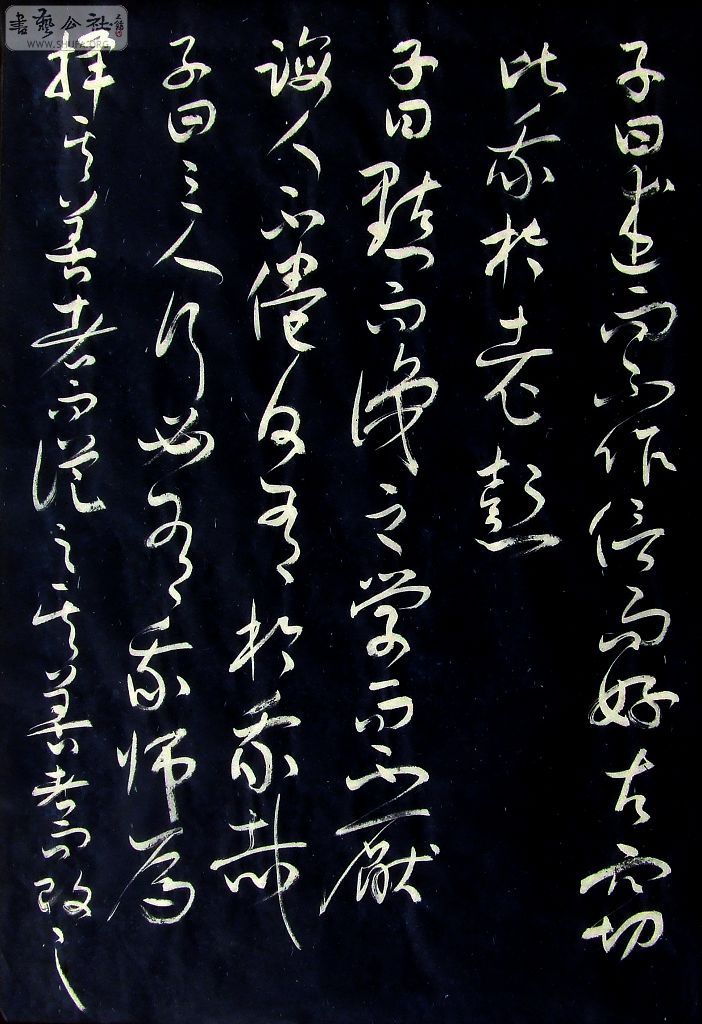 書藝公社
WWW.SHUFA.ORG
子曰述而不作信而好古窃
比我於老彭
子曰默而識之学而不厭
誨人不倦何有於我哉
子曰三人行必有我師焉
擇其善者而從之其善者而改之